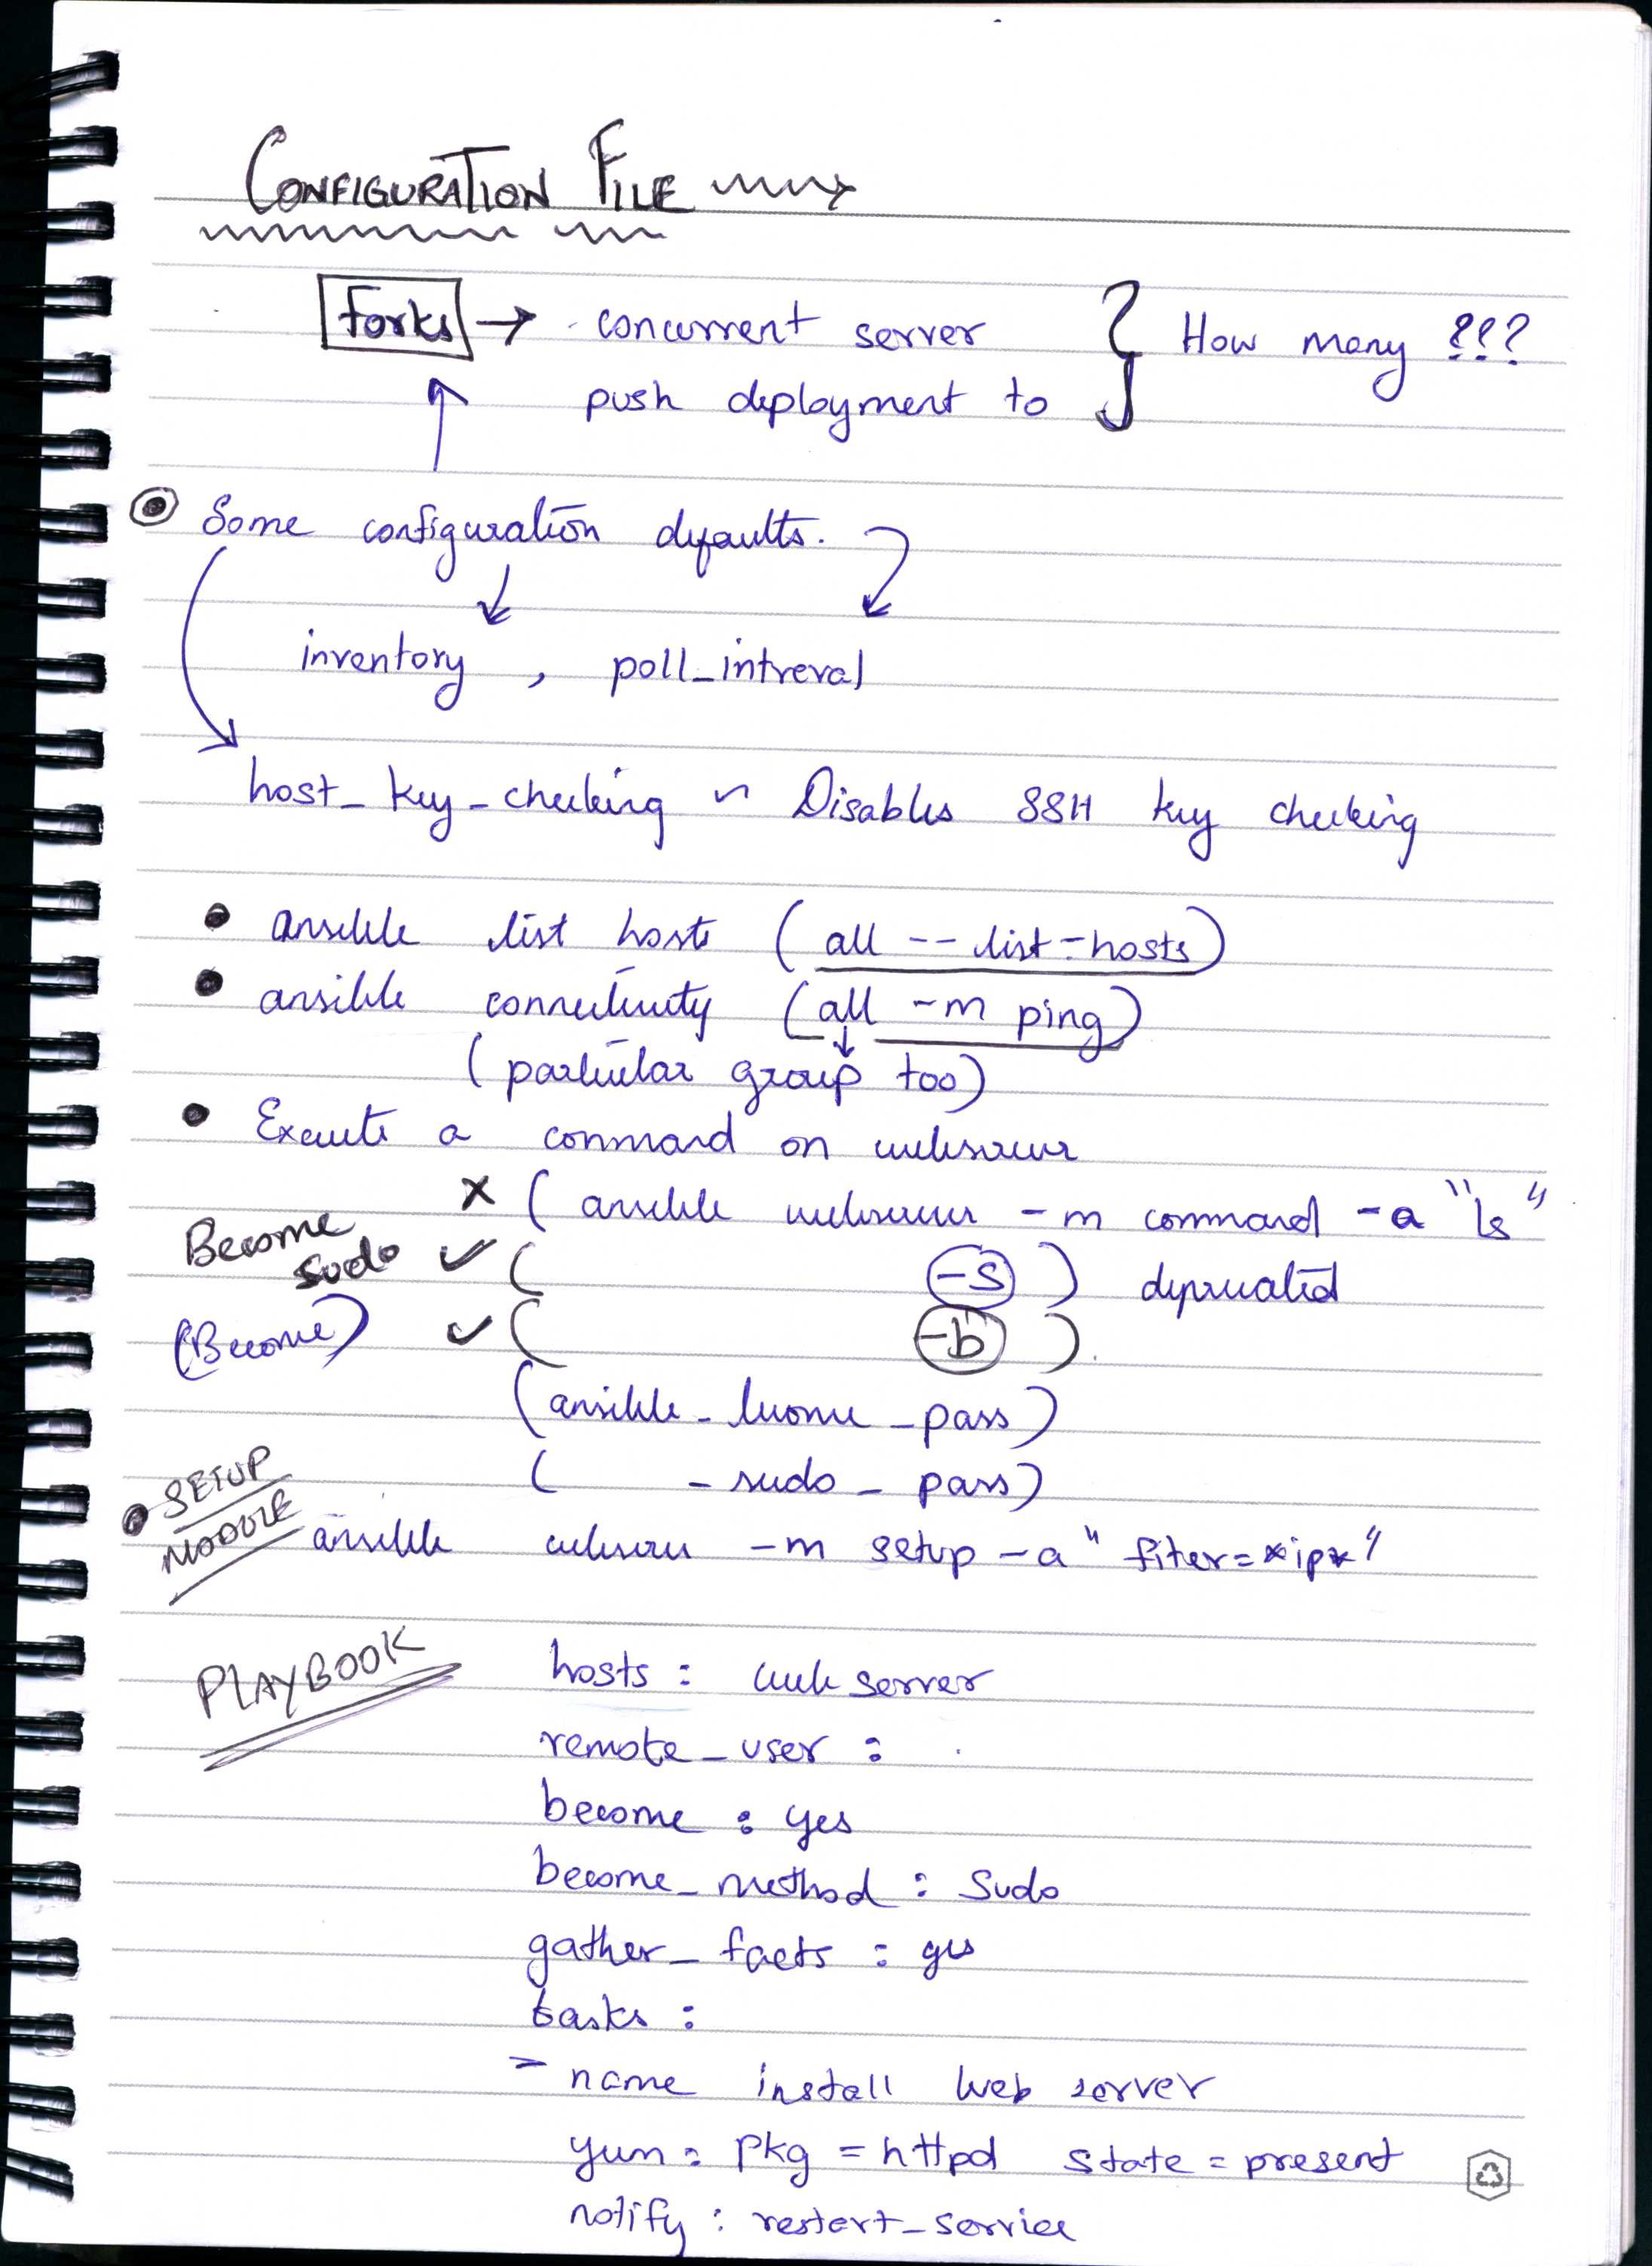 CONFIGURATION FILE
Forks → concurrent server } How many ???
push deployment to
Some configuration defaults.
inventory , poll_intreval
host_key_checking ~ Disables SSH key checking
ansible list hosts (all --list-hosts)
ansible connectivity (all -m ping)
(particular group too)
Execute a command on webserver
x (ansible webserver -m command -a "ls"
Become
sudo ✓ ( -s ) deprecated
(Become) ✓ ( -b ).
(ansible_become_pass)
( _sudo_pass)
SETUP
MODULE
ansible webserver -m setup -a "fiter=*ip*"
PLAYBOOK
hosts : web server
remote_user :
become : yes
become_method : Sudo
gather_facts : yes
tasks :
- name install Web server
yum : pkg = httpd state = present
notify : restart_service